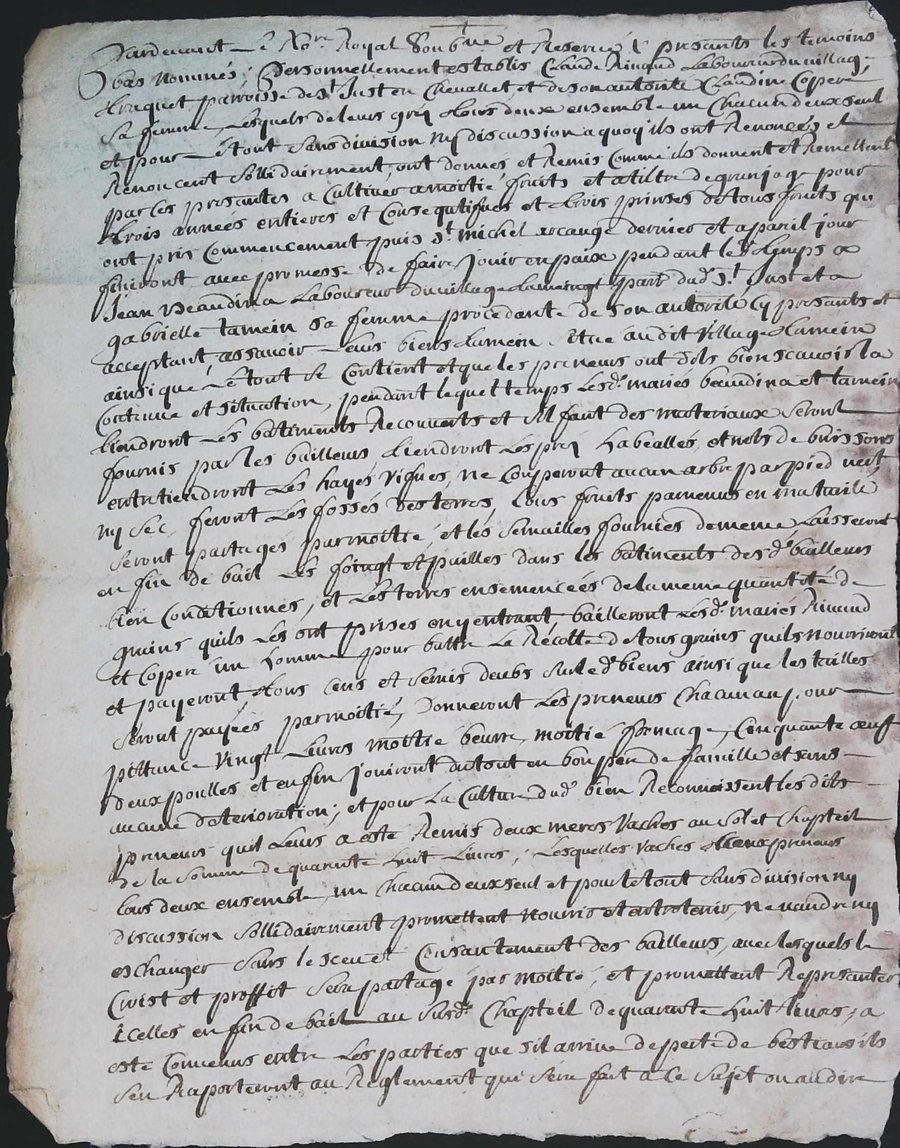 Pardevant Le No.re Royal Soub.né et Reservé & presants les temoins
bas nommés; personnellement establis Claude Rinaud Laboureur du villag.
parroisse de s.t Just en Chevallet et de son autorité Claudine Coperé
Sa femme, Lesquels de leurs gréz tous deux ensemble un Chacun deux seul
et pour Le tout Sans division ny discussion a quoy ils ont Renoncés et
Renoncent sollidairement, ont donnes et Remis Comme ils donnent et Remettent
par Ces presantes a Cultiver a moitié fruits et a tiltre de granjage pour
trois années entieres et Consequtifves et trois prinses de tous fruits qui
ont pris Commencement puis S.t michel arcange dernier et a pareil jour
finiront avec promesse de faire Jouir en paix pendant led. temps a
Jean Beaudina Laboureur du village parr.e dud. S.t Just et a
gabrielle tamein sa femme procedante de Son autorité Cy presants et
acceptant, assavoir Leurs biens Situé audit Village
ainsi que Le tout Se Contient et que les preneurs ont dit bien scavoir la
Contenue et situation, pendant lequel temps Les d. mariés beaudina et tamein
tiendront Les bâtiments Recouverts et sil faut des materiaux seront
fournis par les bailleurs tiendront Les prez et nets de buissons
entretiendront Les hayes vifves, ne Couperont aucun arbre par pied vert
ny sec, feront Les fossés des terres, tous fruits parvenus en maturité
seront partagés par moitié, et les semailles fournies de meme Laisseront
en fin de bail Les foings et pailles dans les bâtiments des d. bailleurs
bien Conditionnés, et Les terres ensemencées de la meme quantité de
grains quils Les ont prises en y entrant, bailleront Les d. mariés Rinaud
et Coperé un homme pour battre La Recolte de tous grains quils nourriront
et payeront tous Cens et servis deubs Sur led. biens ainsi que les tailles
Seront payées par moitié, Donneront Les preneurs Chacun an pour
pittance vingt Livres moitié beurre, moitié fromage, Cinquante oeufs
deux poulles et enfin Jouiront du tout en bon pere de famille et sans
aucune deterioration; et pour La Culture dud. bien Reconnoissent les dits
preneurs quil Leurs a esté Remis deux meres vaches au Sol et Chapteil
de la Somme de quarante huit Livres; Lesquelles vaches preneurs
tous deux ensemble, un Chacun deux seul et pour le tout Sans division ny
discussion Sollidairement promettent nourrir et entretenir, ne vandre ny
eschanger Sans le sceu et Consantement des bailleurs, avec lesquels le
Croist et proffit Sera partagé par moitié, et promettent Representer
icelles en fin de bail au Susd. Chapteil de quarante huit Livres, a
esté Convenus entre Les parties que sil arrive de perte de bestiaux ils
Sen Raporteront au Reglement qui Sera fait a Ce Sujet ou au dire